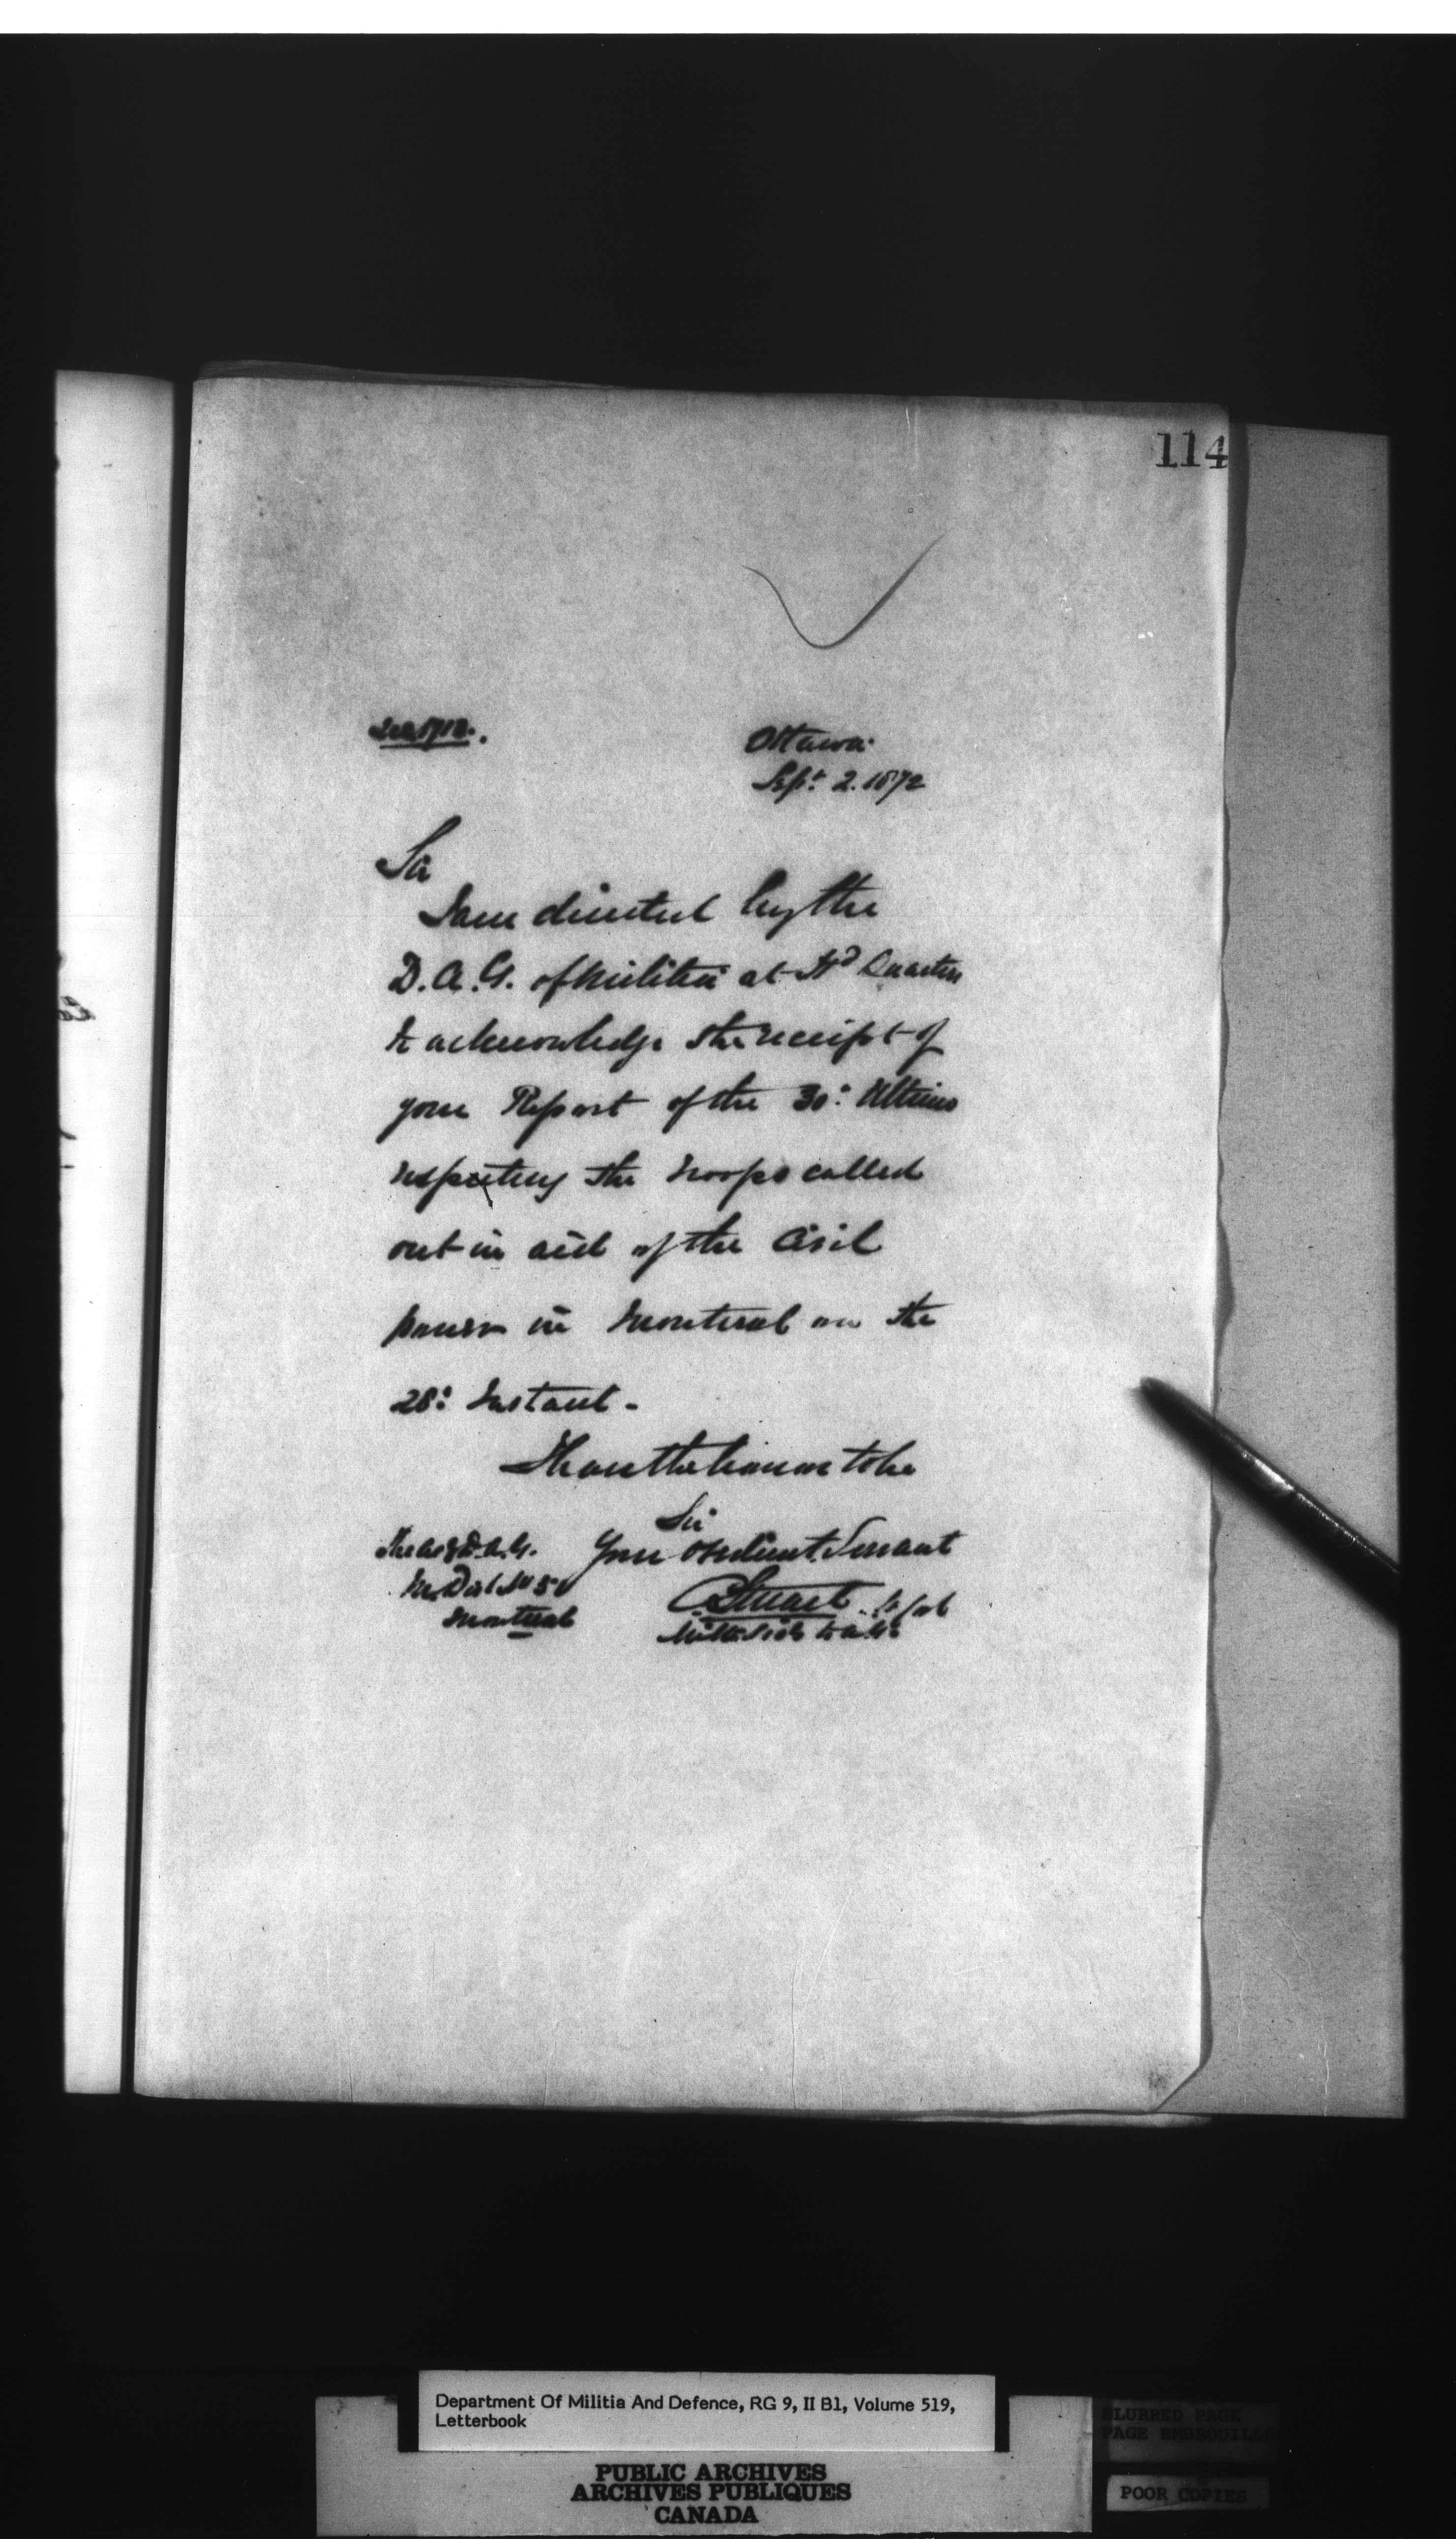 114
Ottawa
Sept. 2. 1872
Sir
I am directed by the
D.A.G. of Militia at Hd Quarters
to acknowledge the receipt of
your Report of the 30: Ultimo
respecting the troops called
out in aid of the Civil
power in Montreal on the
28: Instant -
I have the honor to be
Sir
Your Obedient Servant
The actg D.A.G.
Mil Dist No 5
Montreal
Stuart Lt Col
Department Of Militia And Defence, RG 9, II B1, Volume 519,
Letterbook
PUBLIC ARCHIVES
ARCHIVES PUBLIQUES
CANADA
BLURRED PAGE
PAGE EMBROUILLE
POOR COPIES